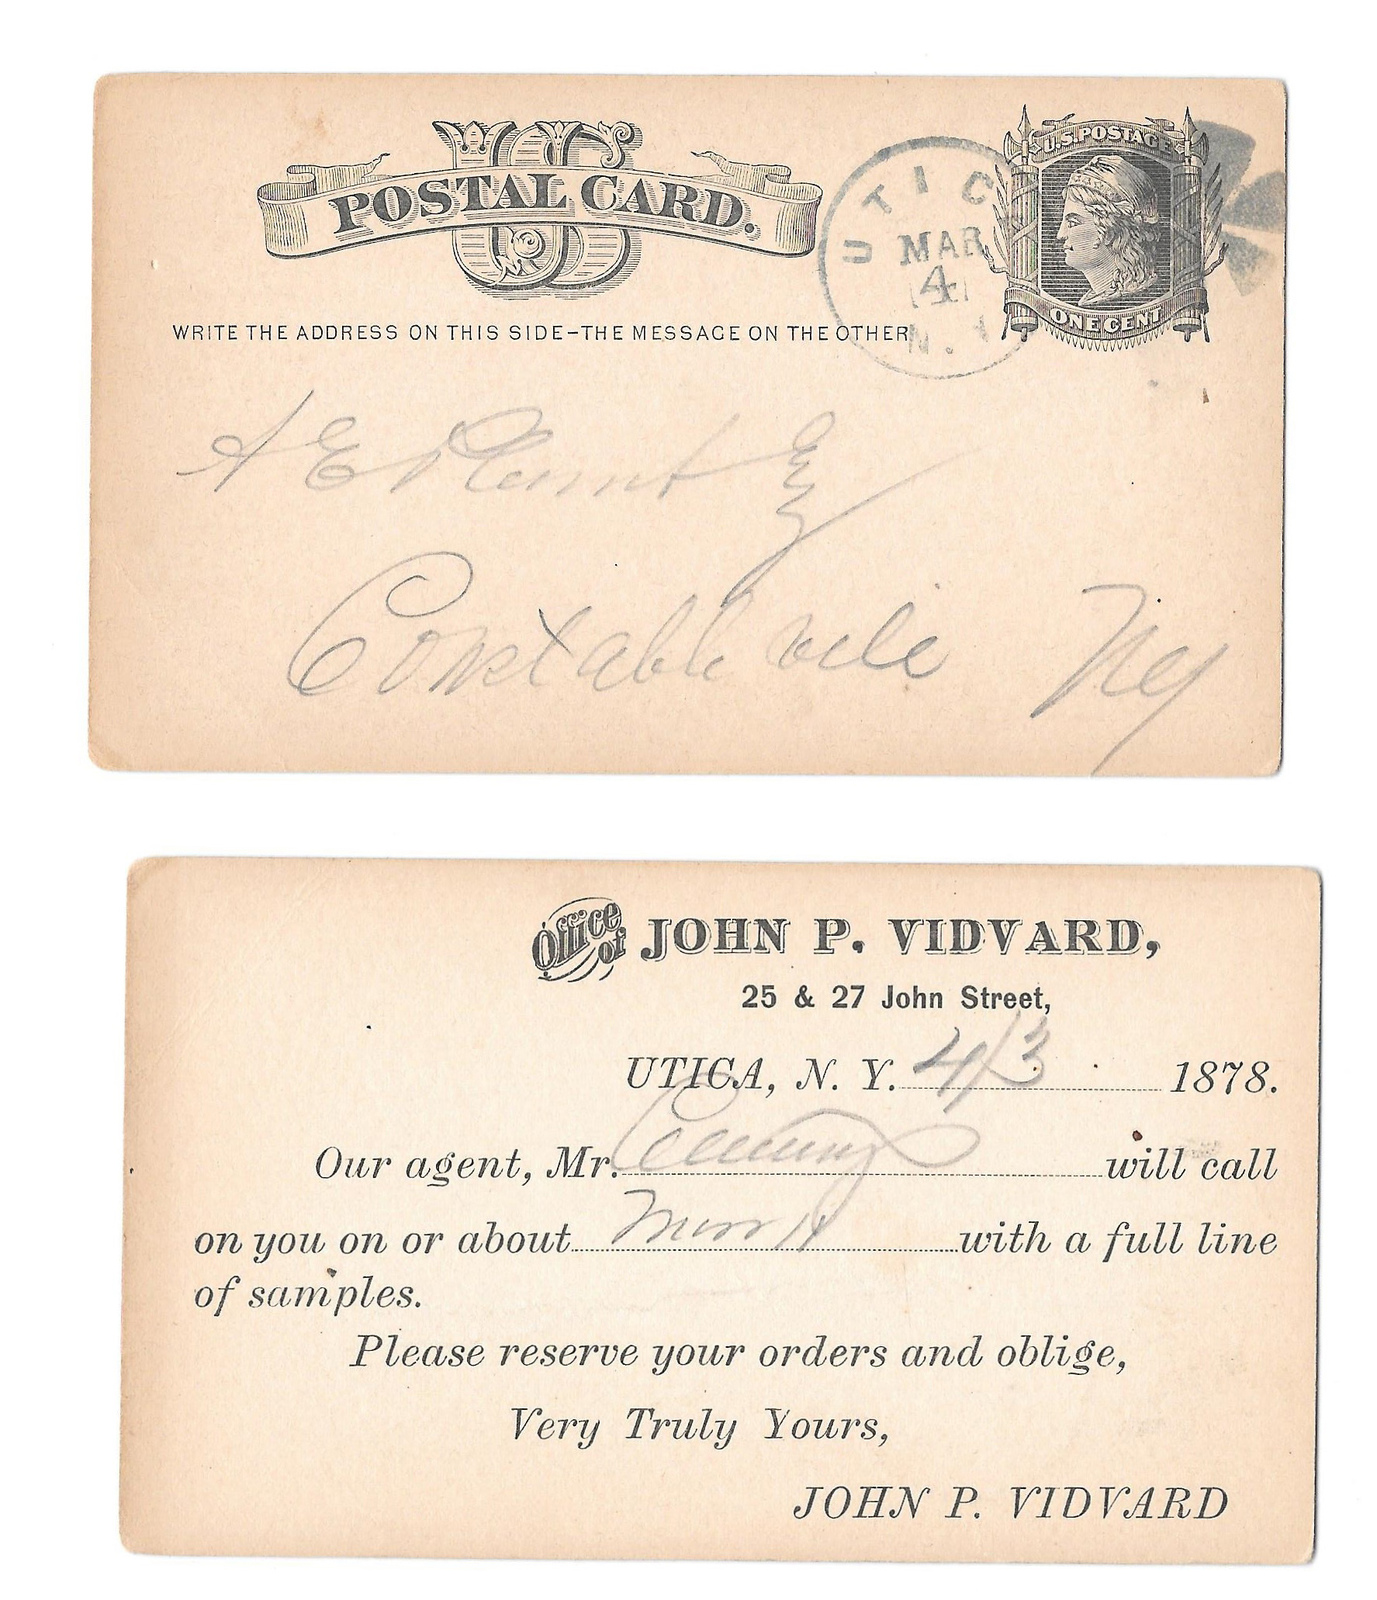 US
POSTAL CARD.
WRITE THE ADDRESS ON THIS SIDE-THE MESSAGE ON THE OTHER
UTICA
MAR
4
N.Y
U.S. POSTAGE
ONE CENT
A E
Constableville Ny
Office of JOHN P. VIDVARD,
25 & 27 John Street,
UTICA, N. Y. 4/3 1878.
Our agent, Mr. will call
on you on or about with a full line
of samples.
Please reserve your orders and oblige,
Very Truly Yours,
JOHN P. VIDVARD